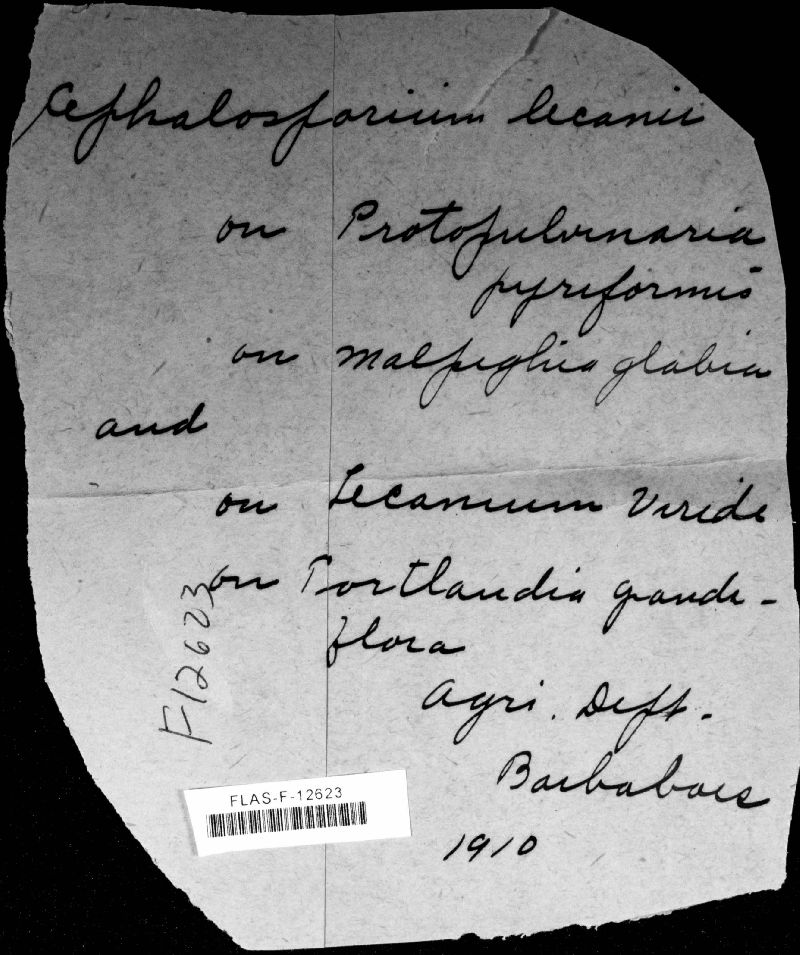 Cephalosporium lecanii
on Protopulvinaria
pyriformis
on Malpighia glabra
and
on Lecanium Viride
on Portlandia grandi-
flora
Agri. Dept.
Barbaboes
1910
F12623
FLAS-F-12623